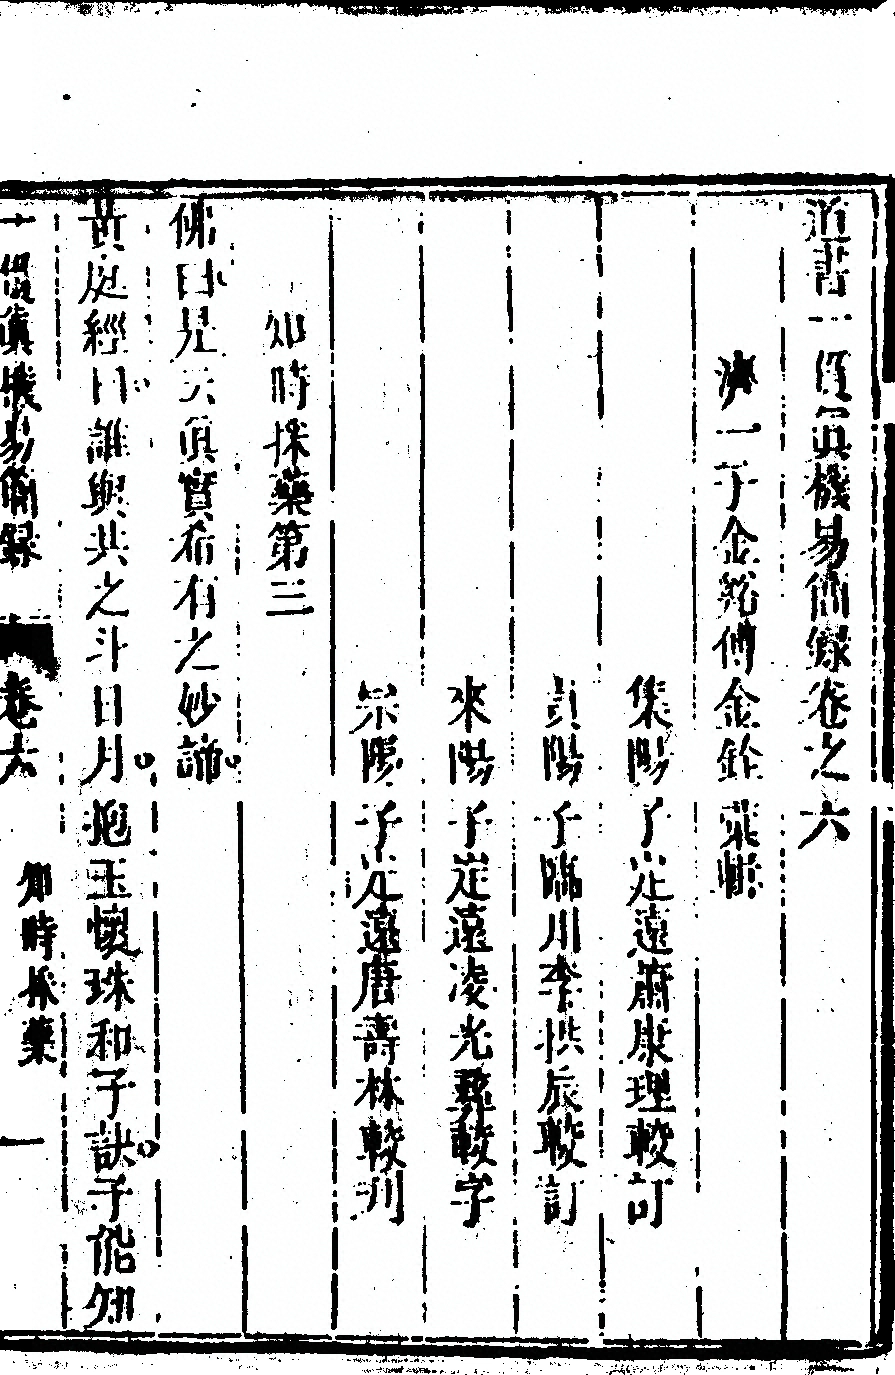 道書一貫眞機易簡錄卷之六
濟一子金谿傅金銓彙輯
集陽子定遠蕭康理較訂
貢陽子臨川李拱辰較訂
來陽子定遠凌光彝較字
宗陽子定遠唐壽林較刊
知時採藥第三
佛曰是大眞實希有之妙諦
黃庭經曰誰與共之斗日月抱玉懷珠和子訣子能知
一貫眞機易簡錄 卷六 知時採藥 一